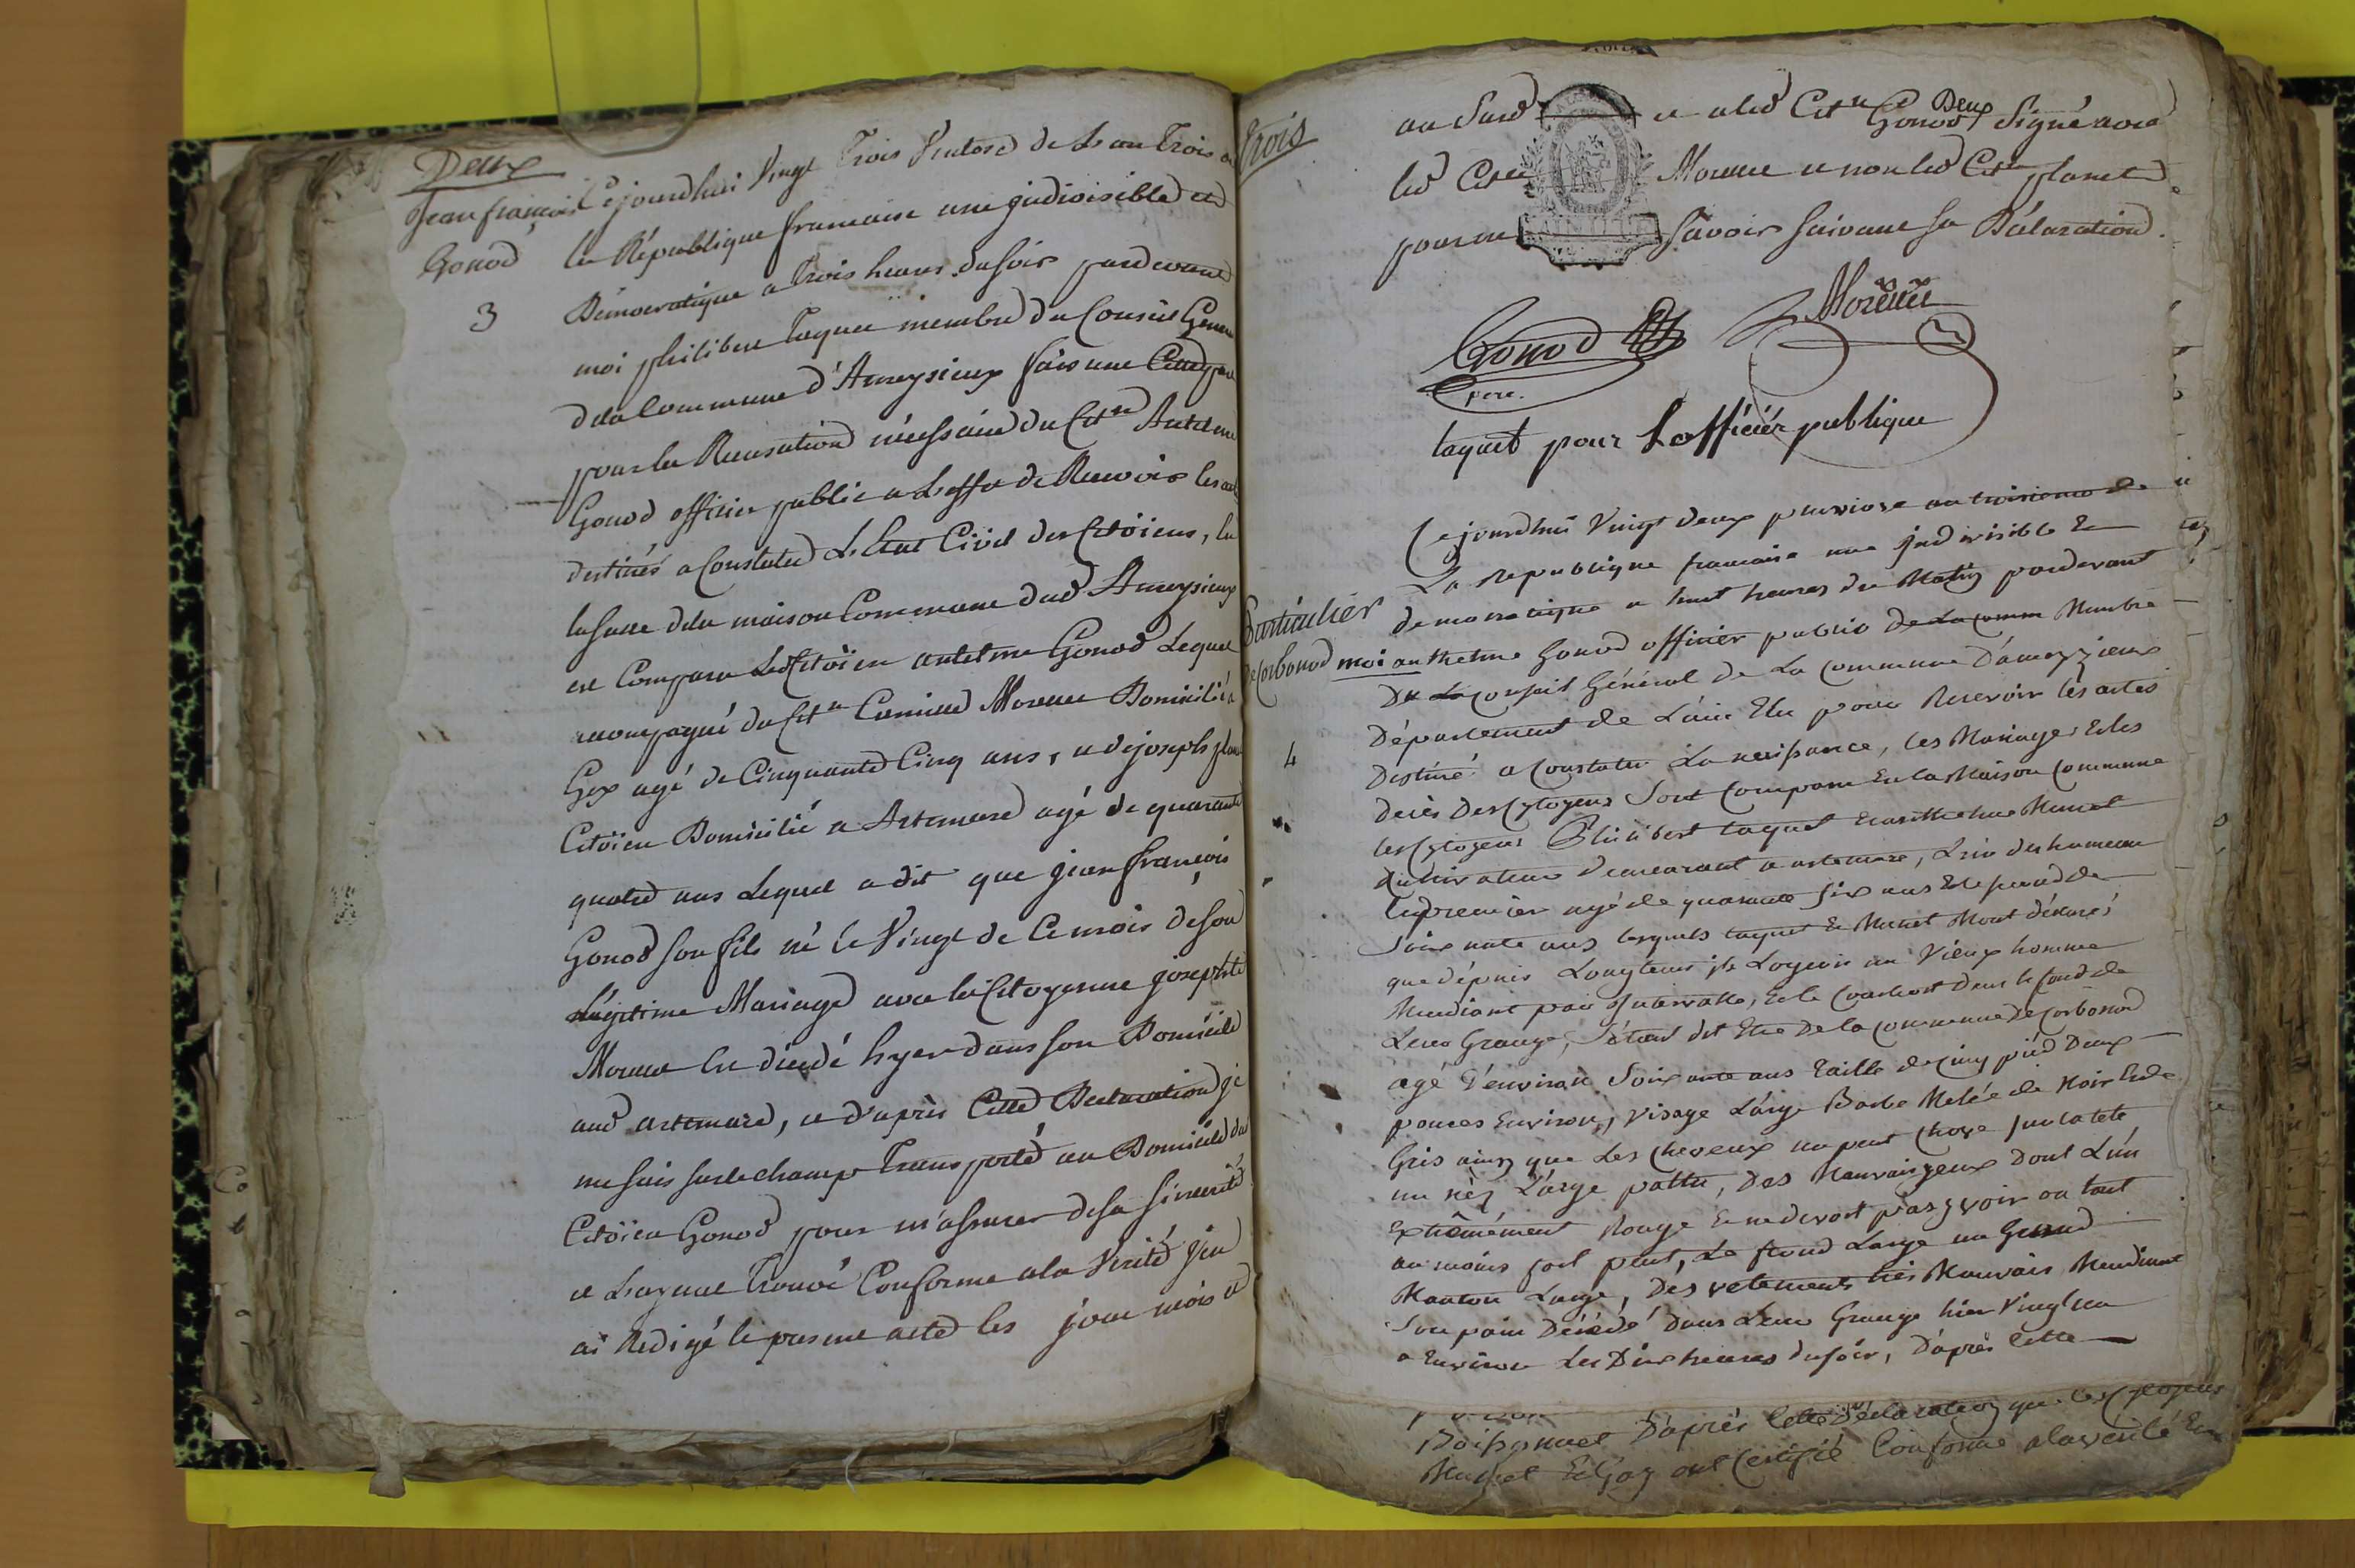 Deux
Jean françois
Gonod
3
Cejourdhui Vingt Trois Ventose de Lan Trois de
la République francaise une indivisible et
Démocratique a trois heures du soir pardevant
moi philibert Taquet membre du Conseil General
de la Commune d'Ameysieux faisant Cette part
pour la Recusation nécessaire du Citn Antelme
Gonod officier public a Leffet de Recevoir les actes
destinés a Constater L'Etat Civil des Citöiens, en
la salle de la maison Commune dud Ameysieux
est Comparu Led Citöien antelme Gonod Lequel
accompagné du Citn Camille Morellet Domicilié a
Gex agé de Cinquante Cinq ans, et de joseph planet
Citöien Domicilié a Artemare agé de quarante
quatre ans Lequel a dit que jean françois
Gonod son fils né le Vingt de Ce mois de son
Légitime Mariage avec la Citoyenne josephte
Morellet Est décédé hyer dans son Domicile
aud artemare, et d'après Cette Declaration je
me suis sur le champ Transporté au Domicile dud
Citöien Gonod pour m'assurer de sa sincerité
et L'ayant trouvé Conforme a la Vérité j'en
ai Redigé le present acte les jour mois et
Trois
an Susd et led Citn Gonod Signé avec
Deux
led Citn Morellet et non led Citn planet
pour ne Savoir suivant sa Déclaration.
Gonod
pere.
Morellet
taquet pour Lofficiér publique
Particulier
de Corbonod
4
Cejourdhui Vingt deux pluviose an troisieme de
La Republique francaise une jndivisible Et
democratique a huit heures du Matin pardevant
moi anthelme Gonod officier public de La comm Membre
Du La Conseil Général de La Commune D'ameyzieux
Département de L'ain Elu pour Recevoir les actes
Destiné a Constater La naissance, les Mariages Et les
décès Des Cytoyens Sont Comparu En la Maison Commune
les Cytoyens Philibert taquet Et anthelme Munet
Cultivateurs demeurant a artemare, L'un des hameau
Le premier agé de quarante six ans Et le second de
Soixante ans lesquels taquet Et Munet Mont déclaré
que dépuis Longtems ils Logeoit un Vieux homme
Mendiant par Intervalle, Et le Couchoit Dans le fond de
Leur Grange, S'étant dit Etre De la Commune de Corbonod
agé D'environ Soixante ans taille de Cinq pied Deux
pouces Environ, Visage Large Barbe Melée de Noir Et de
Gris ainsy que Les Cheveux un peut Chove sur la tete
un néz Large pattu, Des Mauvais yeux Dont L'un
Extrêmément Rouge Et ne devoit pas y voir ou tout
au moins fort peut, Le frond Large un Grand
Manton Large, Des vetements très Mauvais Mendiant
Son pain Décédé Dans Leur Grange hier Vingt un
a Environ Les Dix heures du soir, D'après Cette
Boissonnet D'après Cette Déclaration que les Cytoyens
Munet Et Goy ont Certifié Conforme a la vérité Et